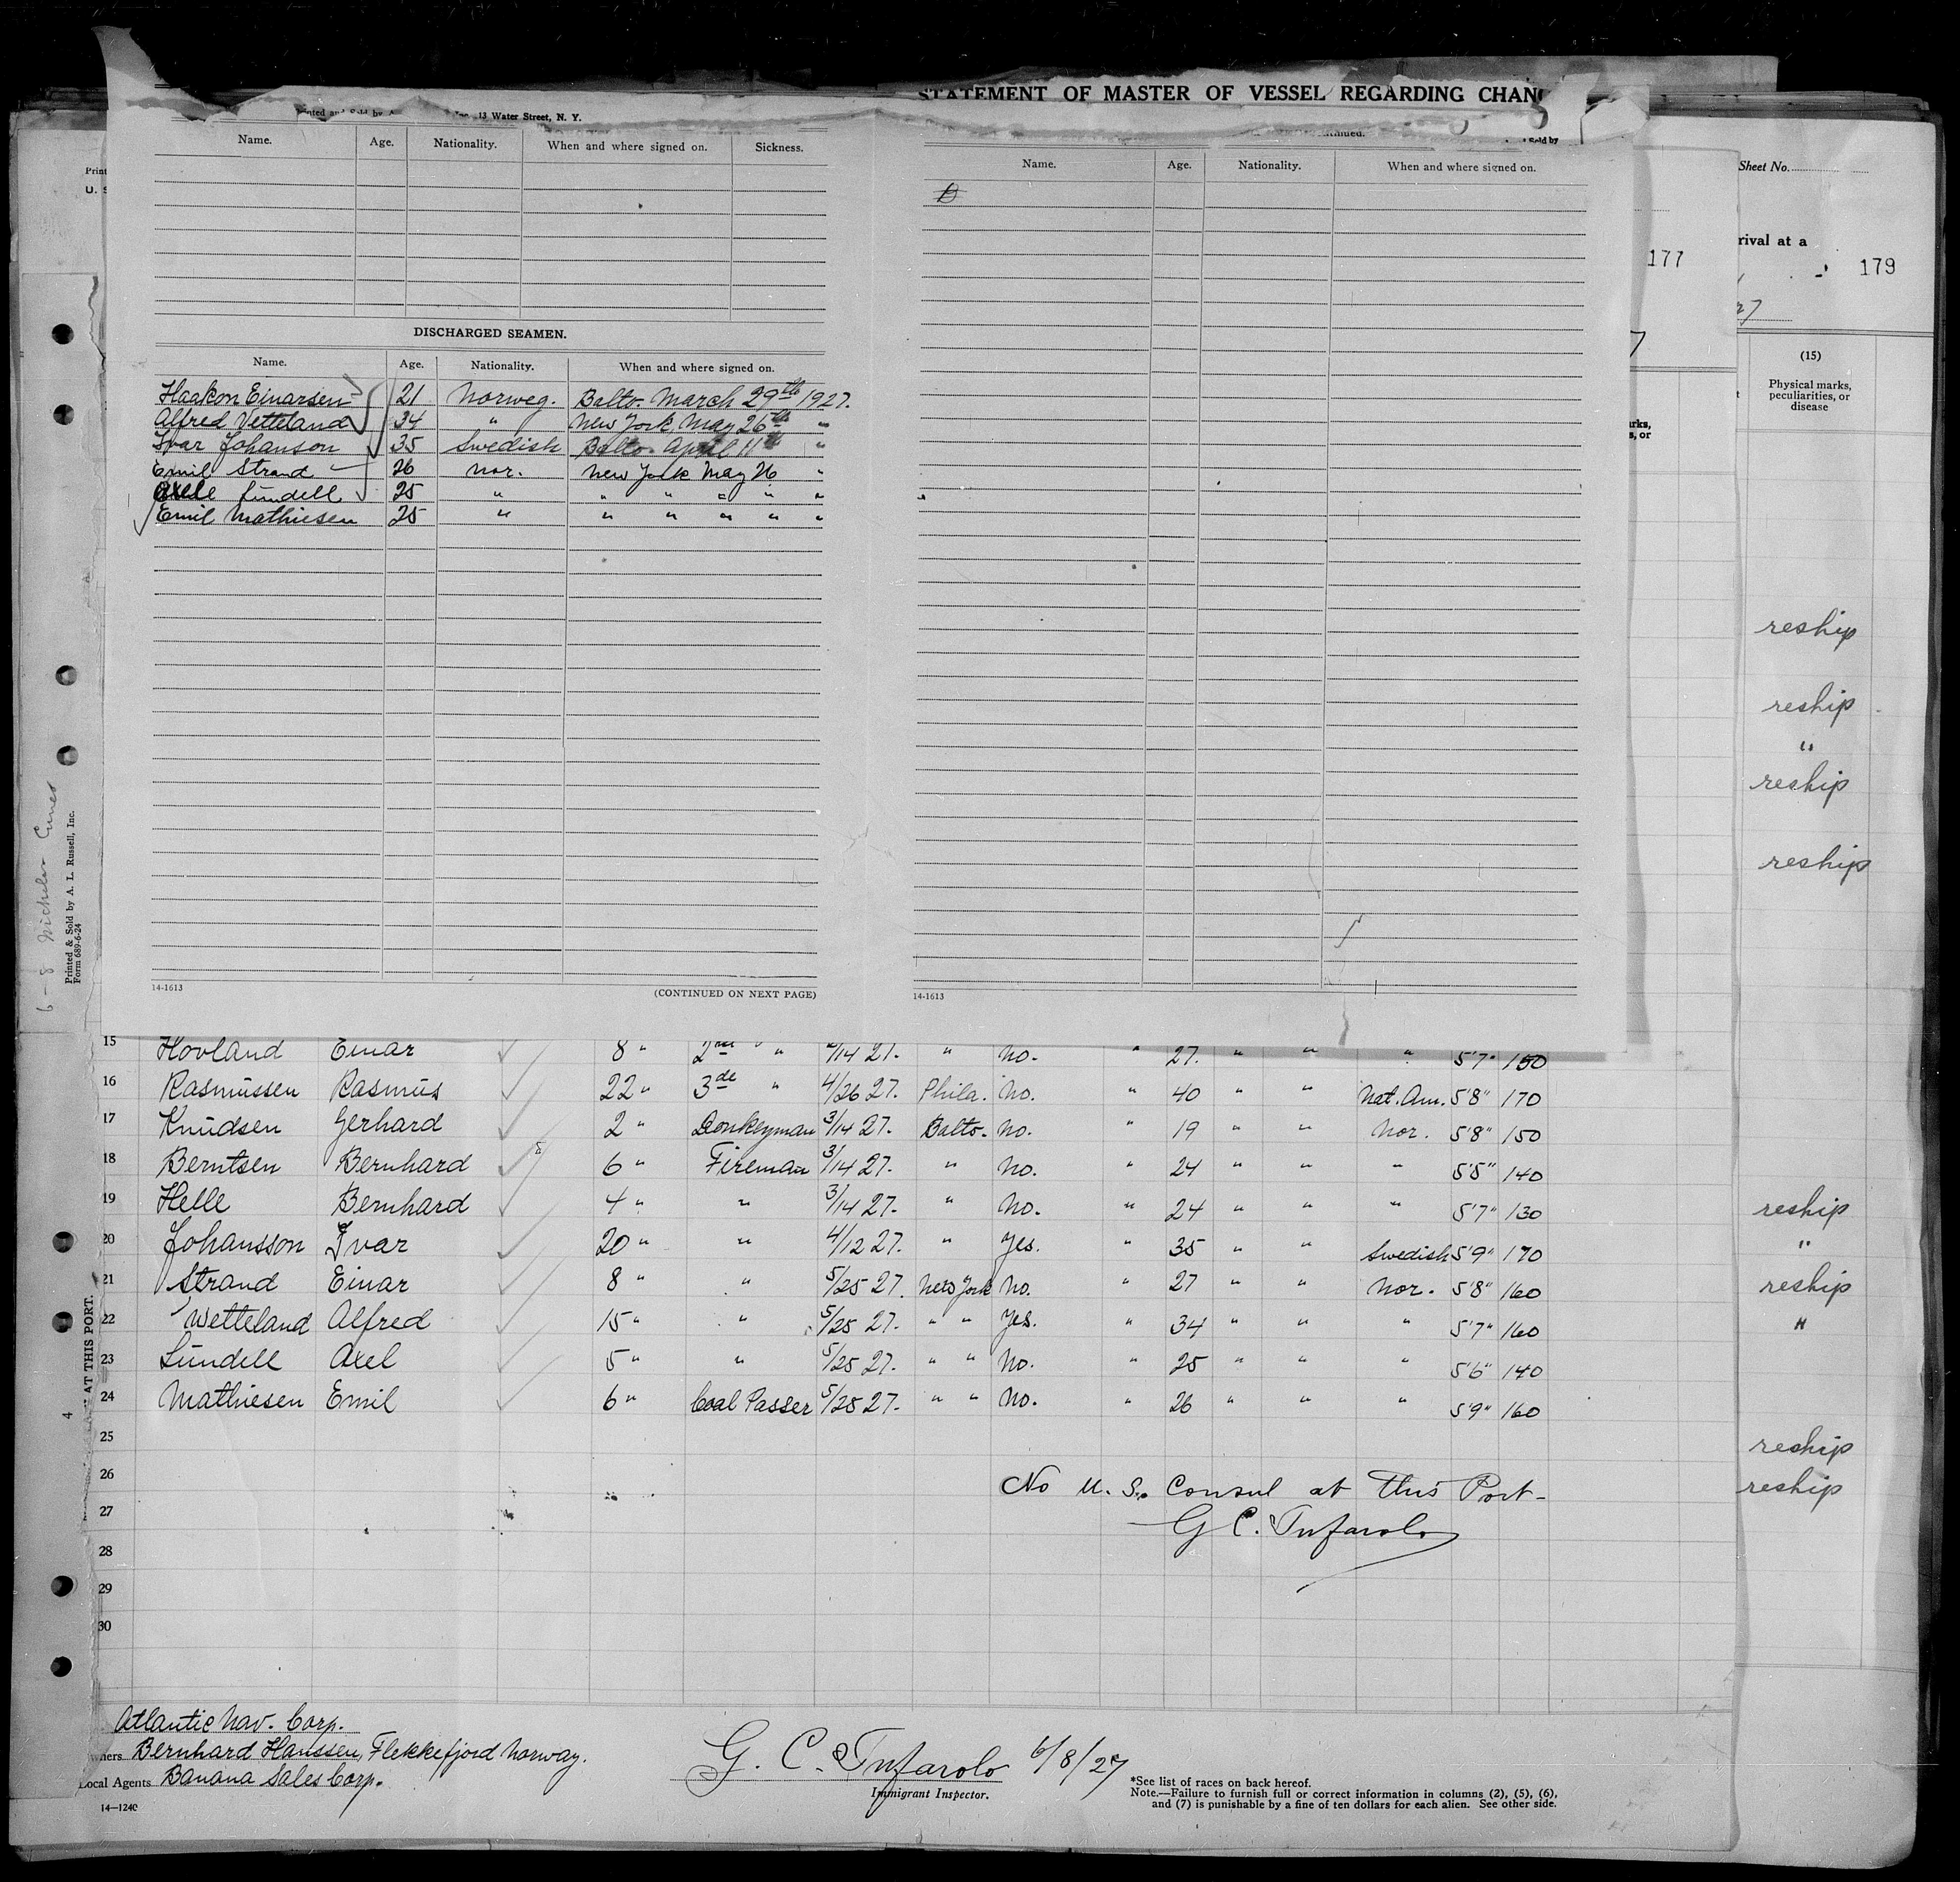 STATEMENT OF MASTER OF VESSEL REGARDING CHAN
13 Water Street, N. Y.
Name. Age. Nationality. When and where signed on. Sickness.
DISCHARGED SEAMEN.
Name. Age. Nationality. When and where signed on.
Haakon Einarsen 21 Norweg. Balto. March 29th 1927.
Alfred Vetteland 34 " New York, May 26th "
Ivar Johanson 35 Swedish Balto. April 11th "
Emil Strand 26 Nor. New York May 26 "
Axel Lundell 25 " " " " " "
Emil Mathiesen 25 " " " " " "
14-1613 (CONTINUED ON NEXT PAGE)
Sold by
Name. Age. Nationality. When and where signed on.
14-1613
177
Sheet No.
rival at a
179
27
(15)
Physical marks, peculiarities, or disease
reship
reship
"
reship
reship
reship
"
reship
"
reship
reship
U. S
Printed & Sold by A. L. Russell, Inc.
Form 689-6-24
AT THIS PORT.
4
15 Hovland Einar 8 " 2nd " /14 27. " No. " 27. " " " 5'7" 150
16 Rasmussen Rasmus 22 " 3de " 4/26 27. Phila. No. " 40 " " Nat. Am. 5'8" 170
17 Knudsen Gerhard 2 " Donkeyman 3/14 27. Balto. No. " 19 " " Nor. 5'8" 150
18 Berntsen Bernhard 6 " Fireman 3/14 27. " No. " 24 " " " 5'5" 140
19 Helle Bernhard 4 " " 3/14 27. " No. " 24 " " " 5'7" 130
20 Johansson Ivar 20 " " 4/12 27. " Yes. " 35 " " Swedish 5'9" 170
21 Strand Einar 8 " " 5/25 27. New York No. " 27 " " Nor. 5'8" 160
22 Wetteland Alfred 15 " " 5/25 27. " " Yes. " 34 " " " 5'7" 160
23 Lundell Axel 5 " " 5/25 27. " " No. " 25 " " " 5'6" 140
24 Mathiesen Emil 6 " Coal Passer 5/25 27. " " No. " 26 " " " 5'9" 160
25
26 No U. S. Consul at this Port-
27 G C. Tufarolo
28
29
30
Atlantic Nav. Corp.
Bernhard Hanssen, Flekkefjord Norway.
Local Agents Banana Sales Corp.
14-1240
G. C. Tufarolo 6/8/27
Immigrant Inspector.
*See list of races on back hereof.
Note.—Failure to furnish full or correct information in columns (2), (5), (6),
and (7) is punishable by a fine of ten dollars for each alien. See other side.